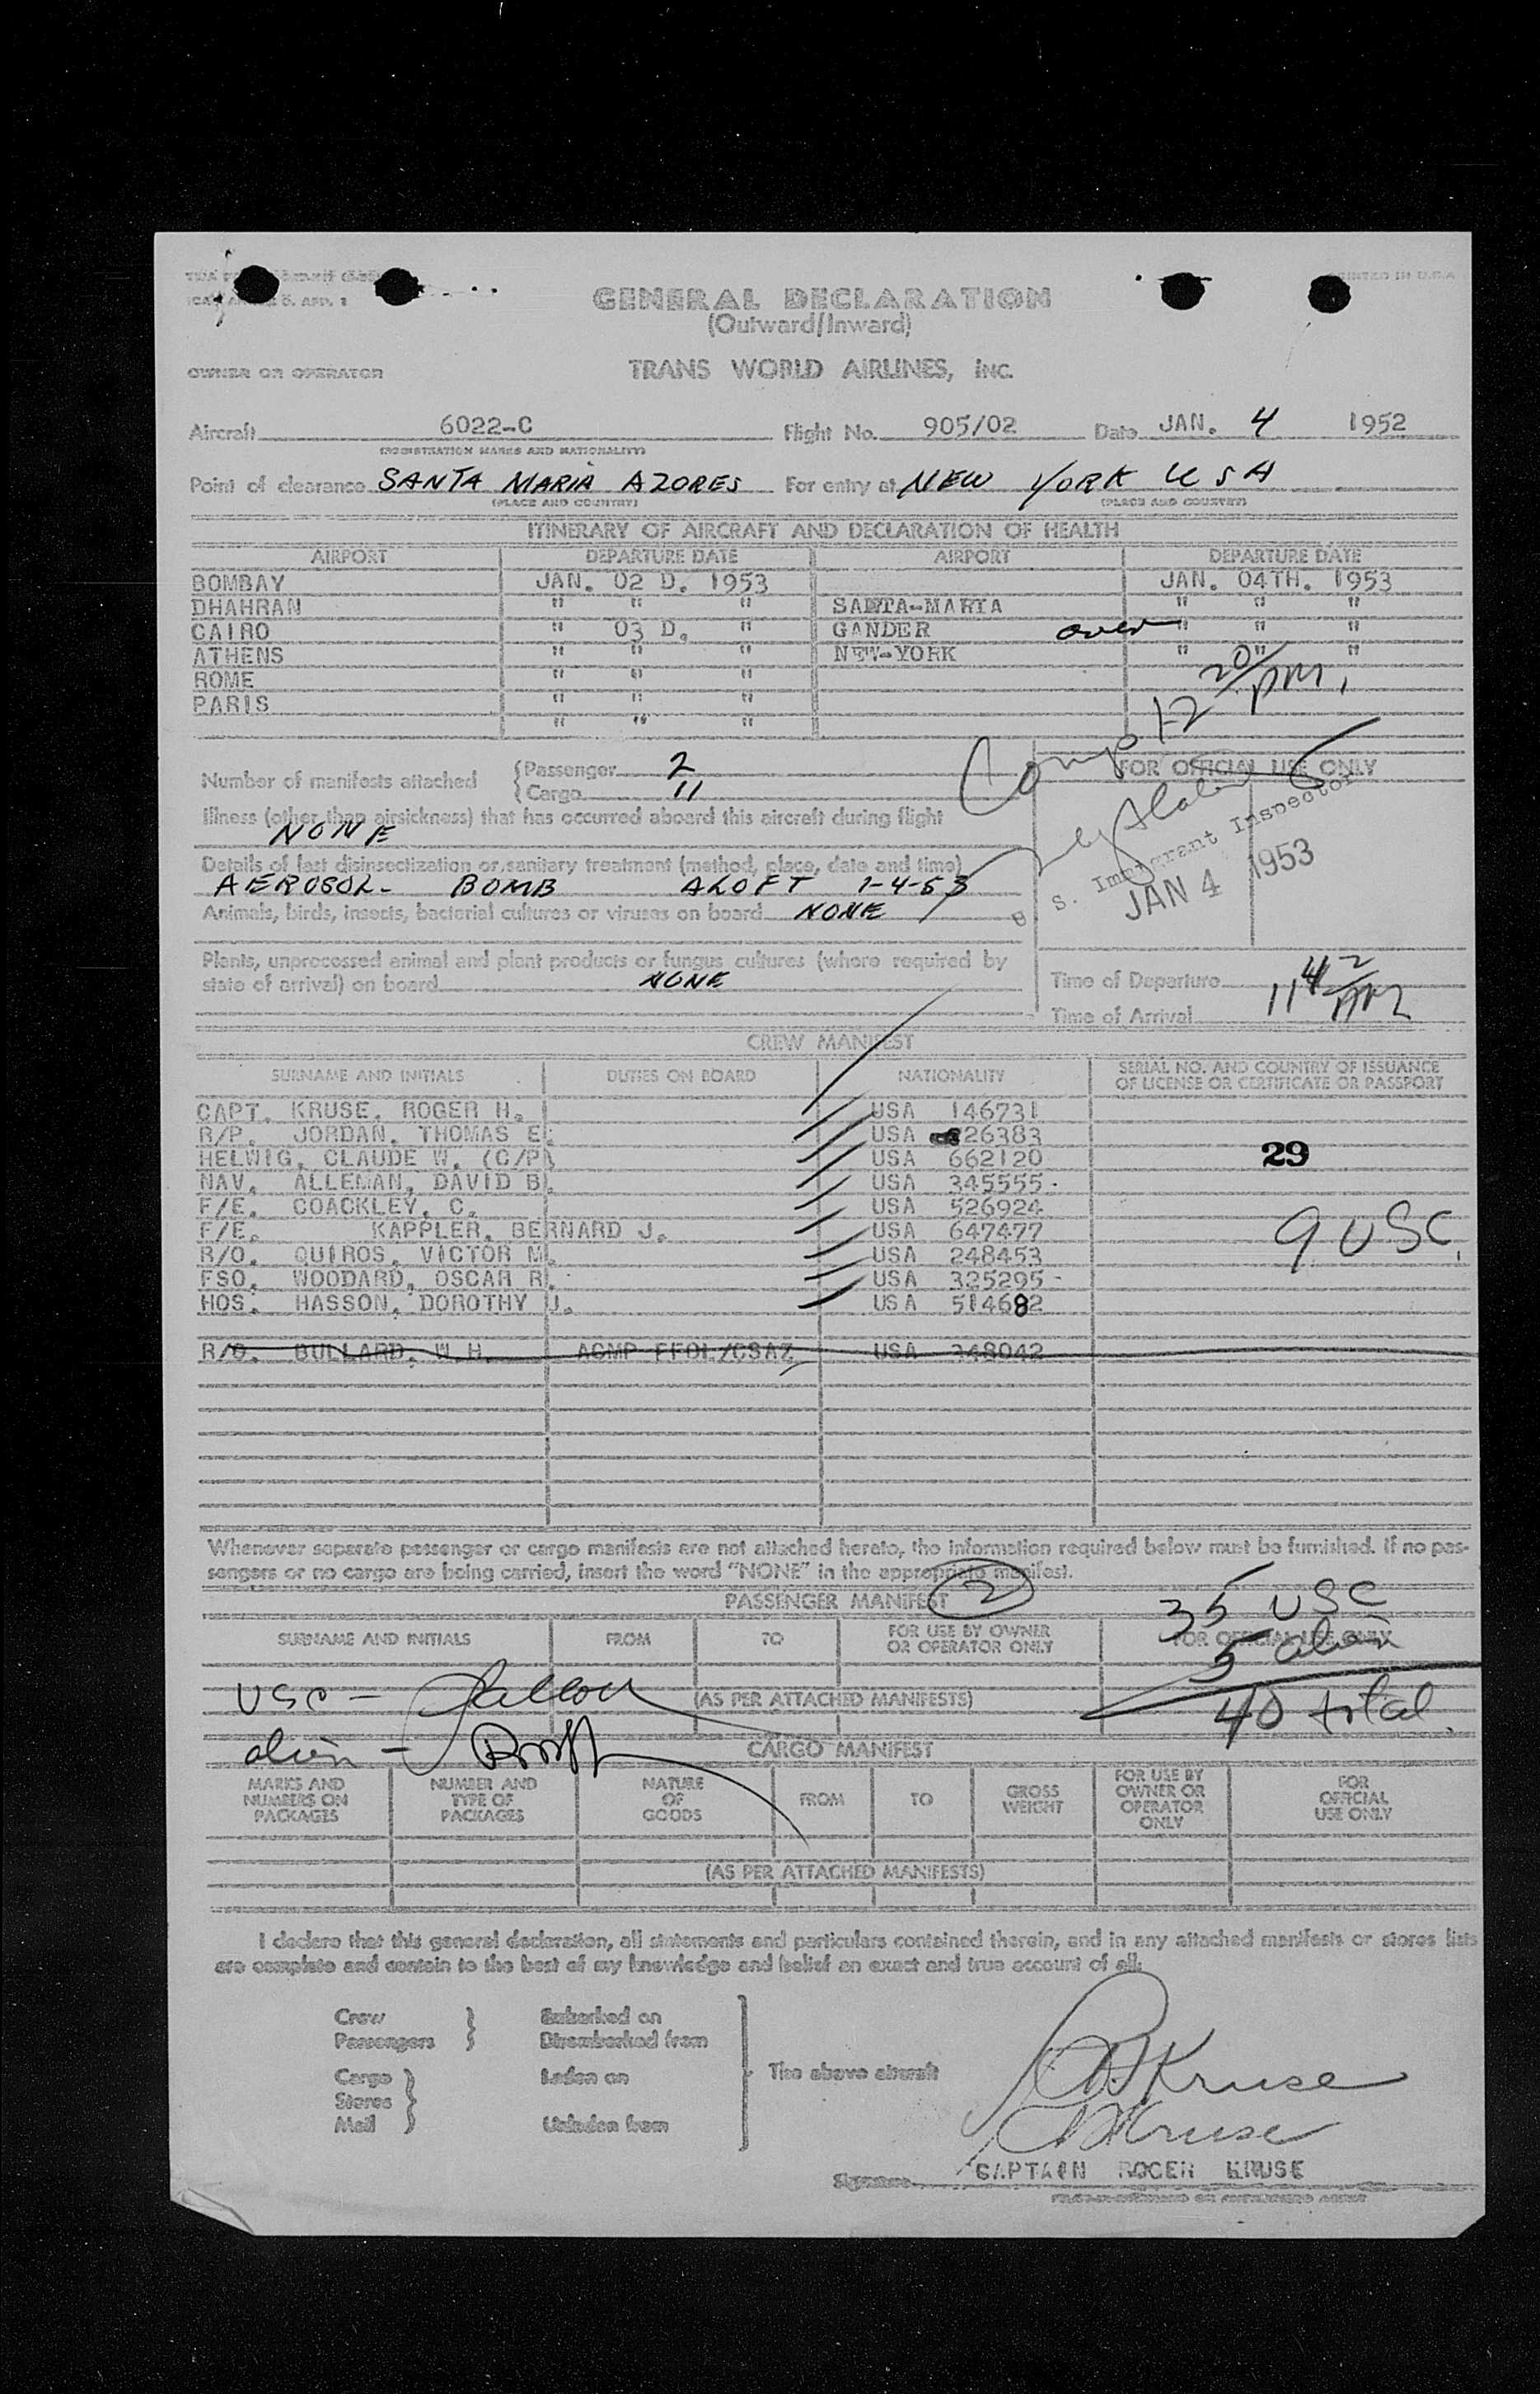 GENERAL DECLARATION
(Outward/Inward)
PRINTED IN U.S.A
OWNER OR OPERATOR TRANS WORLD AIRLINES, INC.
Aircraft 6022-C Flight No. 905/02 Date JAN. 4 1952
(REGISTRATION MARKS AND NATIONALITY)
Point of clearance SANTA MARIA AZORES For entry at NEW YORK USA
(PLACE AND COUNTRY) (PLACE AND COUNTRY)
ITINERARY OF AIRCRAFT AND DECLARATION OF HEALTH
AIRPORT DEPARTURE DATE AIRPORT DEPARTURE DATE
BOMBAY JAN. 02 D. 1953 JAN. 04TH. 1953
DHAHRAN " " " SANTA-MARIA " " "
CAIRO " 03 D. " GANDER over " " "
ATHENS " " " NEW-YORK " " "
ROME " " "
PARIS " " "
" " "
12 20/PM.
Number of manifests attached { Passenger 2
{ Cargo 11
FOR OFFICIAL USE ONLY
Illness (other than airsickness) that has occurred aboard this aircraft during flight
NONE
Details of last disinsectization or sanitary treatment (method, place, date and time)
AEROSOL- BOMB ALOFT 1-4-53
U. S. Immigrant Inspector
JAN 4 1953
Animals, birds, insects, bacterial cultures or viruses on board NONE
Plants, unprocessed animal and plant products or fungus cultures (where required by
state of arrival) on board NONE
Time of Departure
Time of Arrival 11 42 PM
CREW MANIFEST
SURNAME AND INITIALS DUTIES ON BOARD NATIONALITY SERIAL NO. AND COUNTRY OF ISSUANCE
OF LICENSE OR CERTIFICATE OR PASSPORT
CAPT. KRUSE, ROGER H. USA 146731
R/P. JORDAN, THOMAS E. USA 326383
HELWIG, CLAUDE W. (C/P) USA 662120
29
NAV. ALLEMAN, DAVID B. USA 345555-
F/E. COACKLEY, C. USA 526924
F/E. KAPPLER, BERNARD J. USA 647477
9 USC.
R/O. QUIROS, VICTOR M. USA 248453
FSO. WOODARD, OSCAR R. USA 325295-
HOS. HASSON, DOROTHY J. USA 514682
R/O. BULLARD, W.H. ACMP FFOL/CSAZ USA 348042
Whenever separate passenger or cargo manifests are not attached hereto, the information required below must be furnished. If no pas-
sengers or no cargo are being carried, insert the word "NONE" in the appropriate manifest.
PASSENGER MANIFEST 2
35 USC
SURNAME AND INITIALS FROM TO FOR USE BY OWNER
OR OPERATOR ONLY FOR OFFICIAL USE ONLY
5 alien
USC - (AS PER ATTACHED MANIFESTS) 40 total.
alien -
CARGO MANIFEST
MARKS AND
NUMBERS ON
PACKAGES NUMBER AND
TYPE OF
PACKAGES NATURE
OF
GOODS FROM TO GROSS
WEIGHT FOR USE BY
OWNER OR
OPERATOR
ONLY FOR
OFFICIAL
USE ONLY
(AS PER ATTACHED MANIFESTS)
I declare that this general declaration, all statements and particulars contained therein, and in any attached manifests or stores lists
are complete and contain to the best of my knowledge and belief an exact and true account of all:
Crew } Embarked on
Passengers } Disembarked from
Cargo } Laden on The above aircraft
Stores
Mail } Unladen from
R Kruse
R Kruse
Signature CAPTAIN ROGER KRUSE
PILOT-IN-COMMAND OR AUTHORIZED AGENT